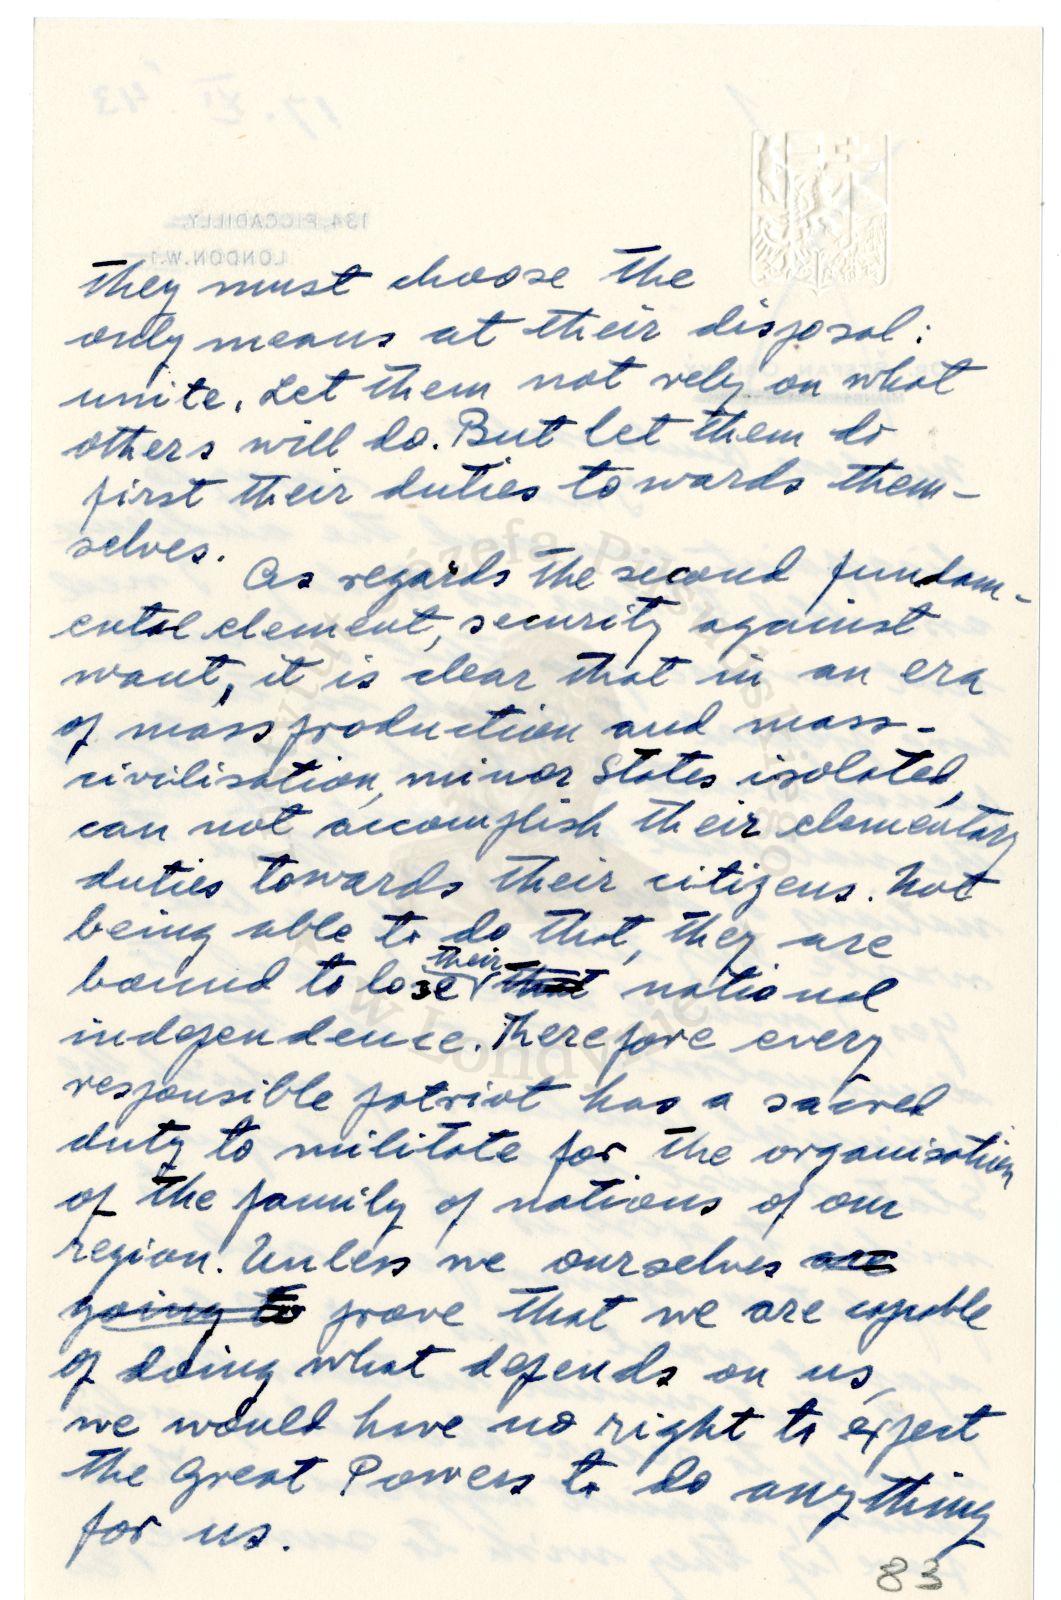 they must choose the
only means at their disposal:
unite. Let them not rely on what
others will do. But let them do
first their duties towards them-
selves.
As regards the second fundam-
ental element, security against
want, it is clear that in an era
of mass production and mass-
civilisation, minor States isolated,
can not accomplish their elementary
duties towards their citizens. Not
being able to do that, they are
bound to lose their that national
independence. Therefore every
responsible patriot has a sacred
duty to militate for the organisation
of the family of nations of our
region. Unless we ourselves are
going to prove that we are capable
of doing what depends on us,
we would have no right to expect
the Great Powers to do anything
for us.
83
17. XI. '43
134, PICCADILLY,
LONDON. W.1.
w Londynie